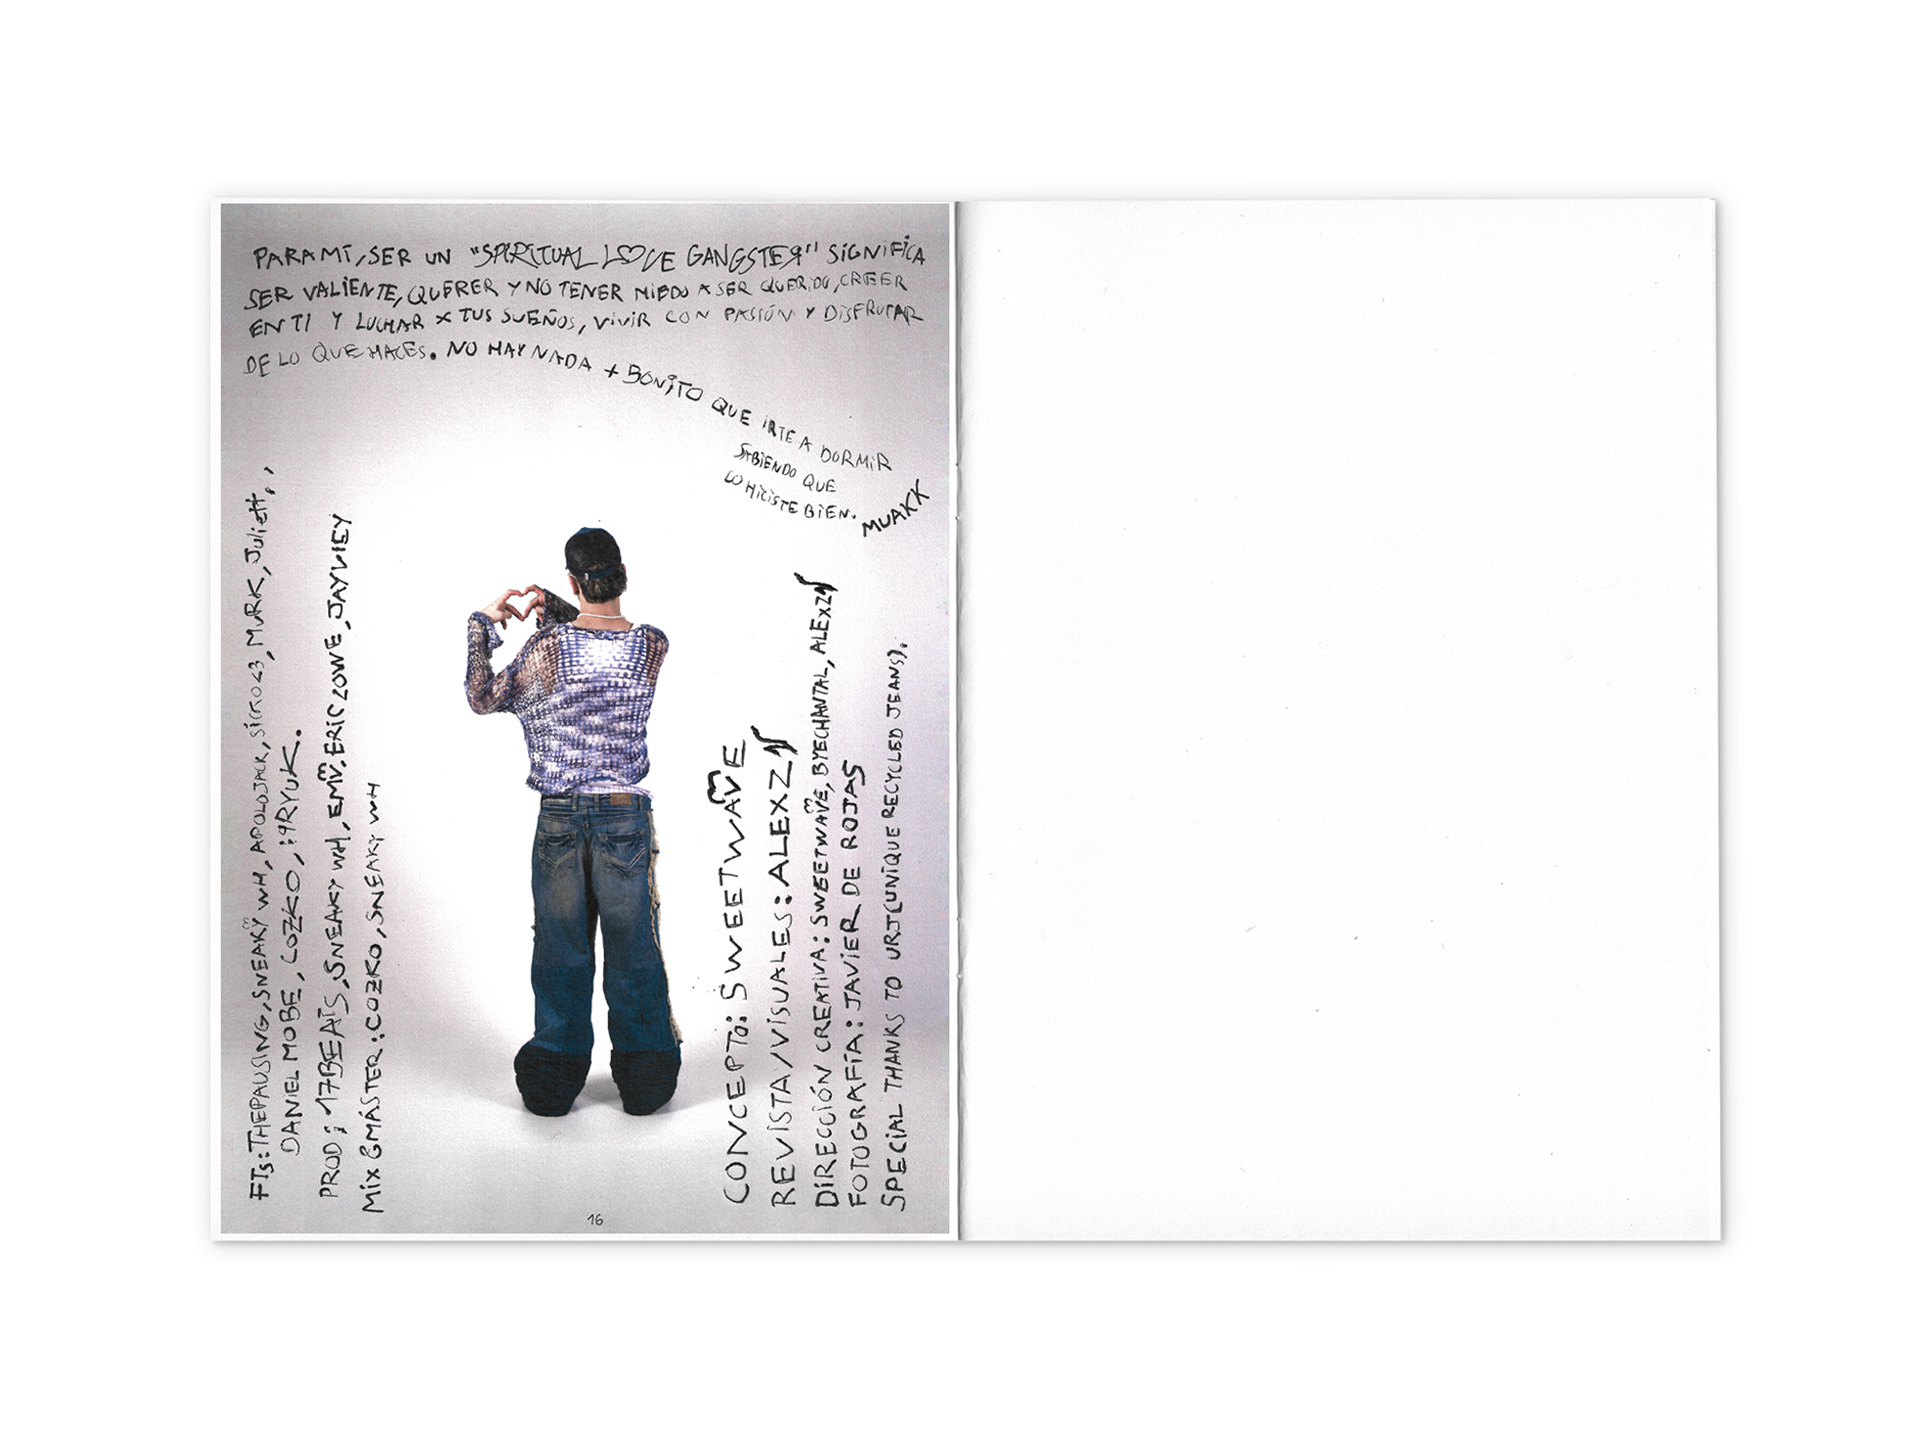 PARA MÍ, SER UN "SPIRITUAL LOVE GANGSTER" SIGNIFICA
SER VALIENTE, QUERER Y NO TENER MIEDO A SER QUERIDO, CREER
EN TI Y LUCHAR X TUS SUEÑOS, VIVIR CON PASIÓN Y DISFRUTAR
DE LO QUE HACES. NO HAY NADA + BONITO QUE IRTE A DORMIR
SABIENDO QUE
LO HICISTE BIEN. MUAKK
FTs: THEPAUSING, SNEAKY WH, APOLOJACK, SICKO<3, MURK, Juliett,,
DANIEL MOBE, COZKO, i9RYUK.
PROD: 17BEATS, SNEAKY WH, EMV, ERIC LOWE, JAYVIEY
Mix &MÁSTER: COZKO, SNEAKY WH
CONCEPTO: SWEETWAVE
REVISTA/VISUALES: ALEXZ
DIRECCIÓN CREATIVA: SWEETWAVE, BYECHANTAL, ALEXZ
FOTOGRAFÍA: JAVIER DE ROJAS
SPECIAL THANKS TO URJ(UNIQUE RECYCLED JEANS).
16